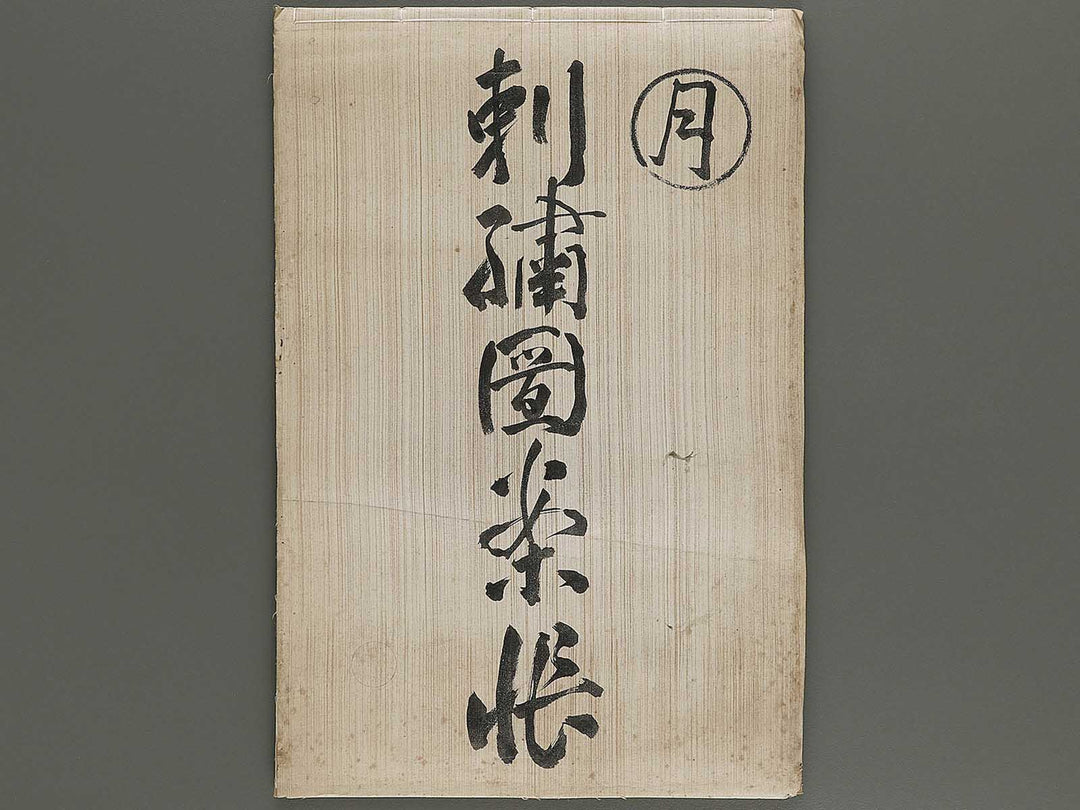 月
刺繡圖案帳